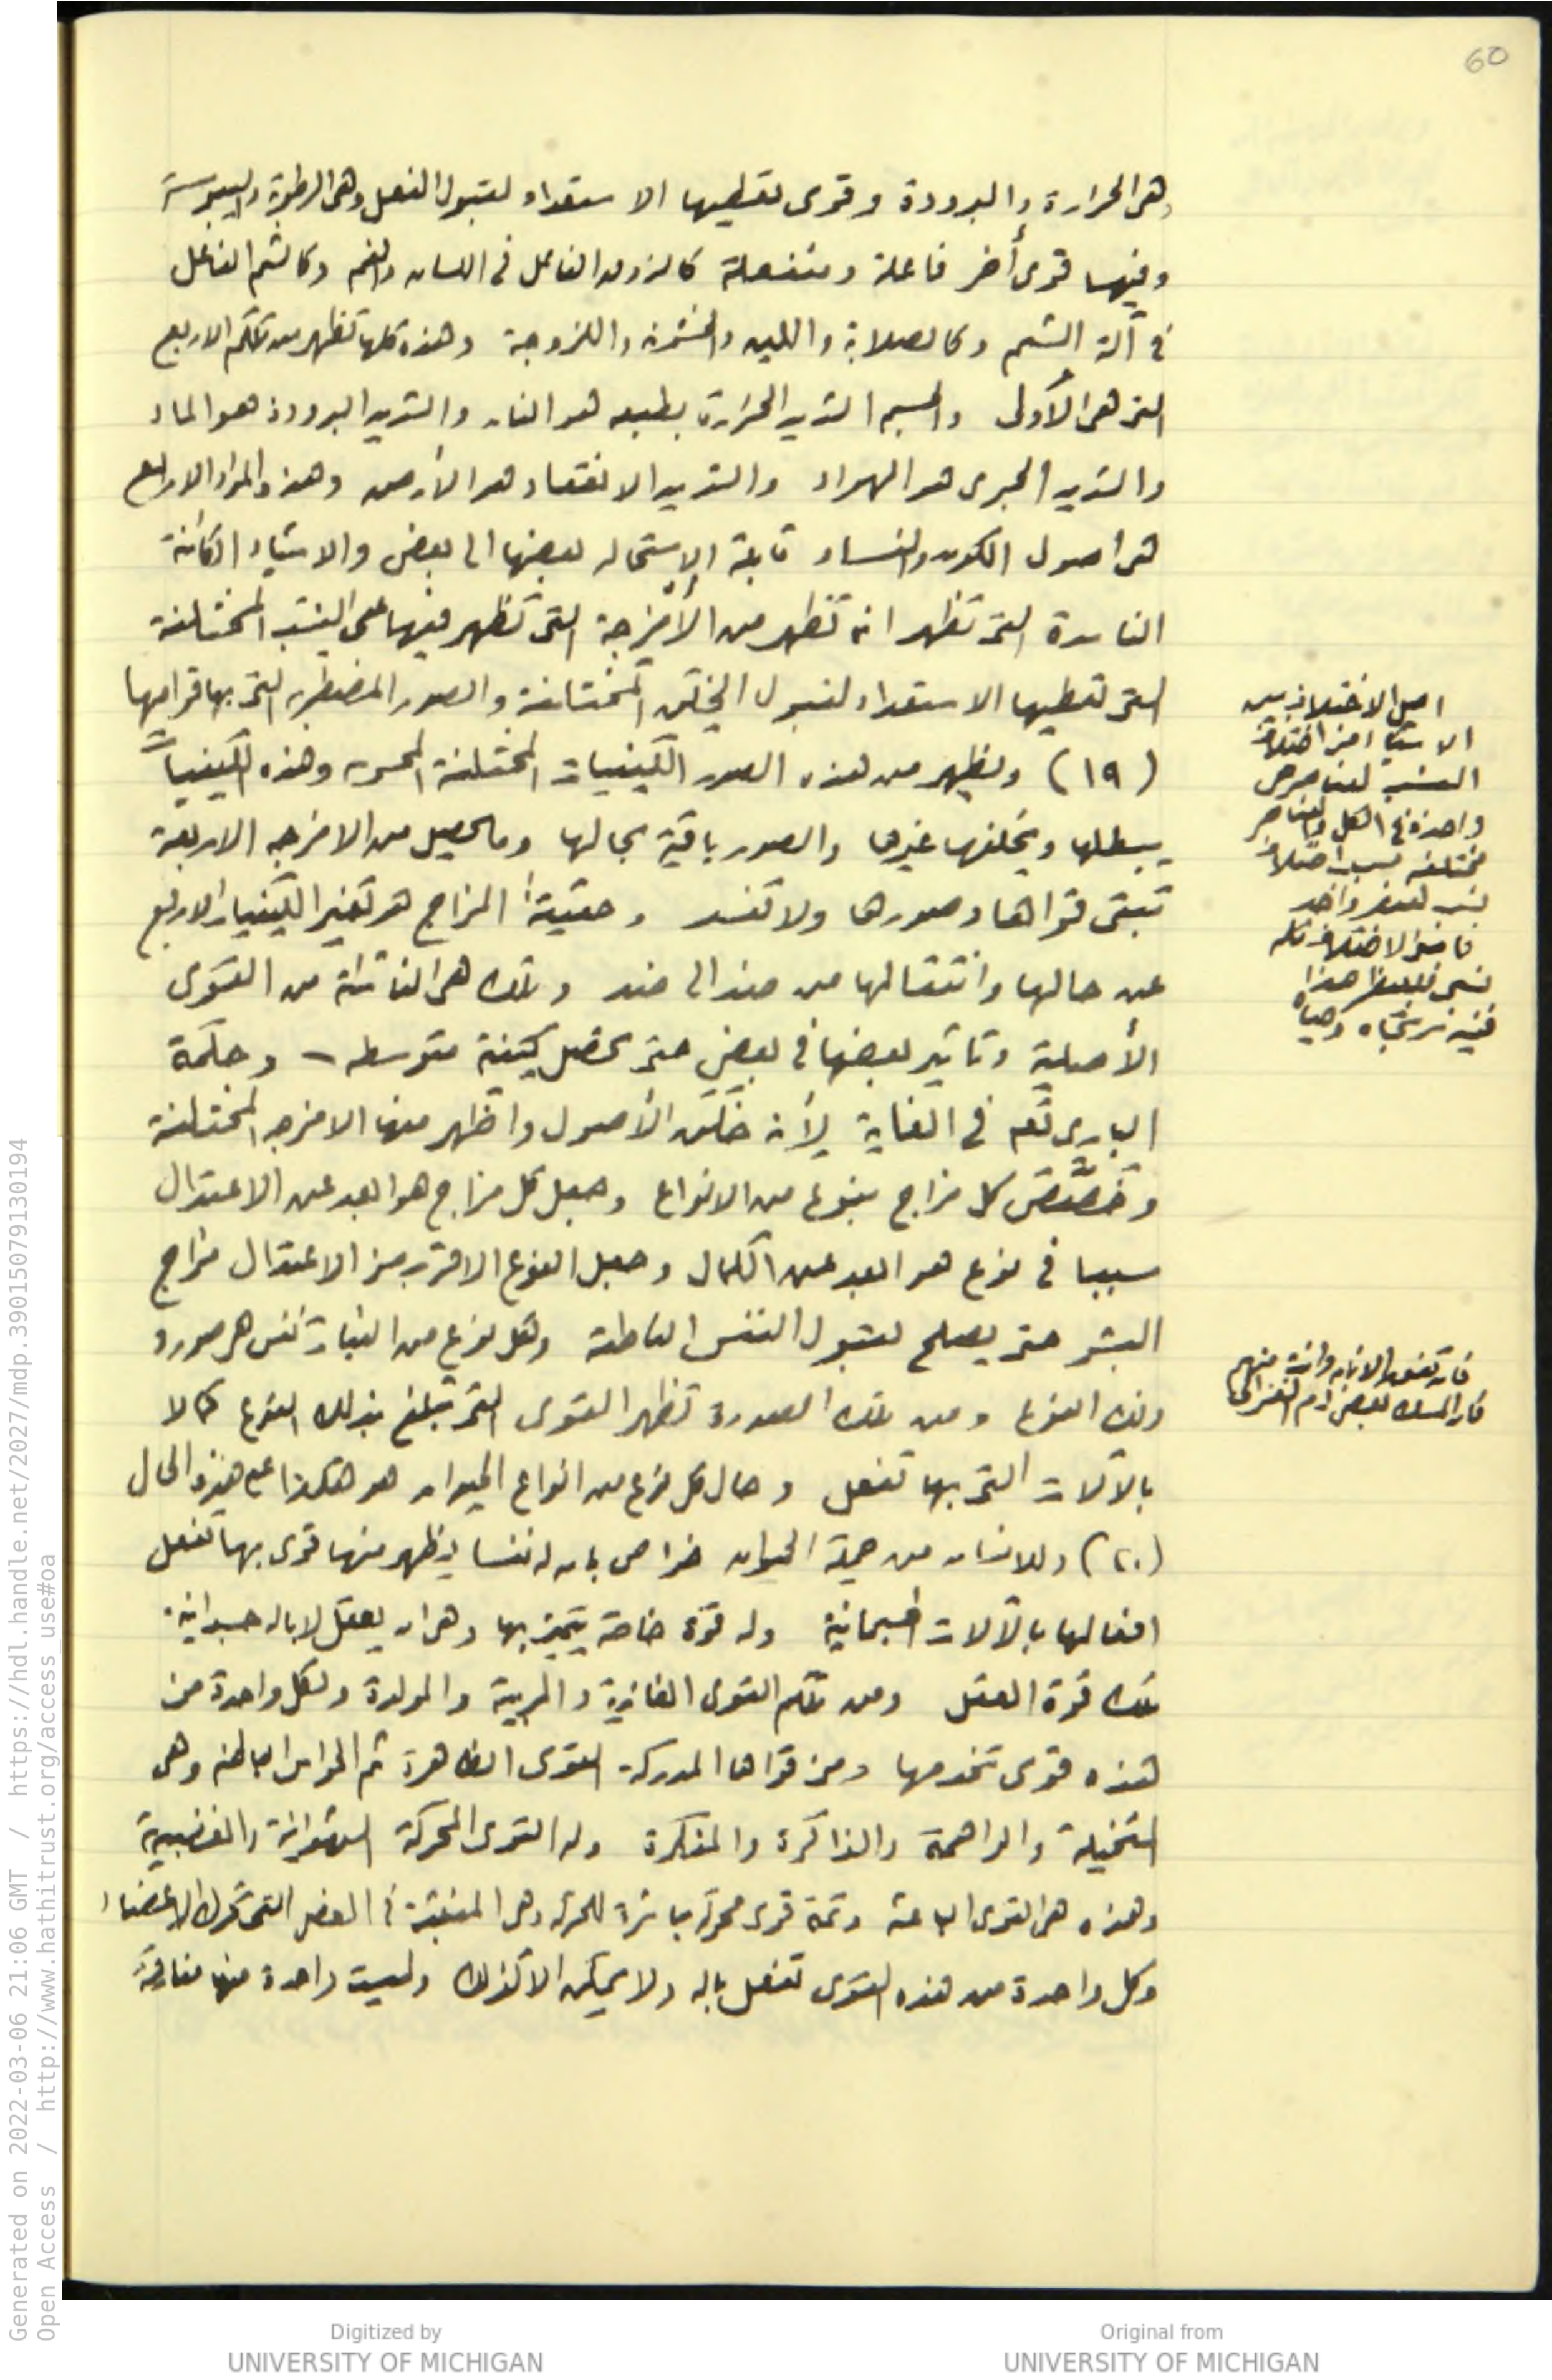 60
وهى الحرارة والبرودة وقوى تعطيها الاستعداد لقبول الفعل وهى الرطوبة واليبوسة
وفيها قوى أخر فاعلة ومنفعلة كالذوق الفاعل فى اللسان والفم وكالشم الفاعل
فى آلة الشم وكالصلابة واللين والخشونة واللزوجة وهذه كلها تظهر من تلكم الاربع
التى هى الأولى والجسم الشديد الحرارة بطبعه هو النار والشديد البرودة هو الماء
والشديد الجرى هو الهواء والشديد الانعقاد هو الأرض وهذه المواد الاربع
هى اصول الكون والفساد قابلة الاستحالة بعضها الى بعض والاشياء الكائنة
الفاسدة التى تظهر انما تظهر من الأمزجة التى تظهر فيها على النسب المختلفة
التى تعطيها الاستعداد لقبول الخلق المختلفة والصور التى بها قوامها
(١٩) ويظهر من هذه الصور الكيفيات المختلفة المحسوسة وهذه الكيفيات
يبطلها ويخلفها غيرها والصور باقية بحالها وما يحصل من الامزجة الاربعة
تبقى قواها وصورها ولا تفسد وحقيقة المزاج هو تغير الكيفيات الاربع
عن حالها وانتقالها من ضد الى ضد وتلك هى الناشئة من القوى
الأصلية وتاثير بعضها فى بعض حتى تحصل كيفية متوسطة وحكمة
البارى تعم فى الغاية لأنه خلق الأصول واظهر منها الامزجة المختلفة
وخصّص كل مزاج بنوع من الانواع وجعل كل مزاج هو ابعد عن الاعتدال
سببا فى نوع هو ابعد عن الكمال وجعل النوع الاقرب من الاعتدال مزاج
البشر حتى يصلح لقبول النفس الناطقة ولكل نوع من النبات نفس هى صورة
ذلك النوع ومن تلك الصورة تظهر القوى التى تبلغ بذلك النوع كمالا
بالآلات التى بها تفعل وحال كل نوع من انواع الحيوان هو هكذا على هذه الحال
(٢٠) وللانسان من جملة الحيوان خواص بان له نفسا يظهر منها قوى بها تفعل
افعالها بالآلات الجسمانية وله قوة خاصة يتميز بها وهى ان يعقل لا بالة جسدانية
تلك قوة العقل ومن تلكم القوى الغاذية والمربية والمولدة ولكل واحدة من
هذه قوى تخدمها ومن قواها المدركة القوى الظاهرة ثم الحواس الباطنة وهى
المتخيلة والواهمة والذاكرة والمفكرة وله القوى المحركة الشهوانية والغضبية
وهذه هى القوى الباعثة وثمة قوى محركة مباشرة للحركة وهى المنبثة فى العضل التى تحرك الاعضاء
وكل واحدة من هذه القوى تفعل بالة ولا يمكن الا كذلك وليست واحدة منها مفارقة
اصل الاختلاف بين
الاشياء من اختلاف
النسب
واحدة فى الكل والعناصر
مختلفة بسبب اختلاف
Generated on 2022-03-06 21:06 GMT / https://hdl.handle.net/2027/mdp.39015079130194
Open Access / http://www.hathitrust.org/access_use#oa
Digitized by
UNIVERSITY OF MICHIGAN
Original from
UNIVERSITY OF MICHIGAN